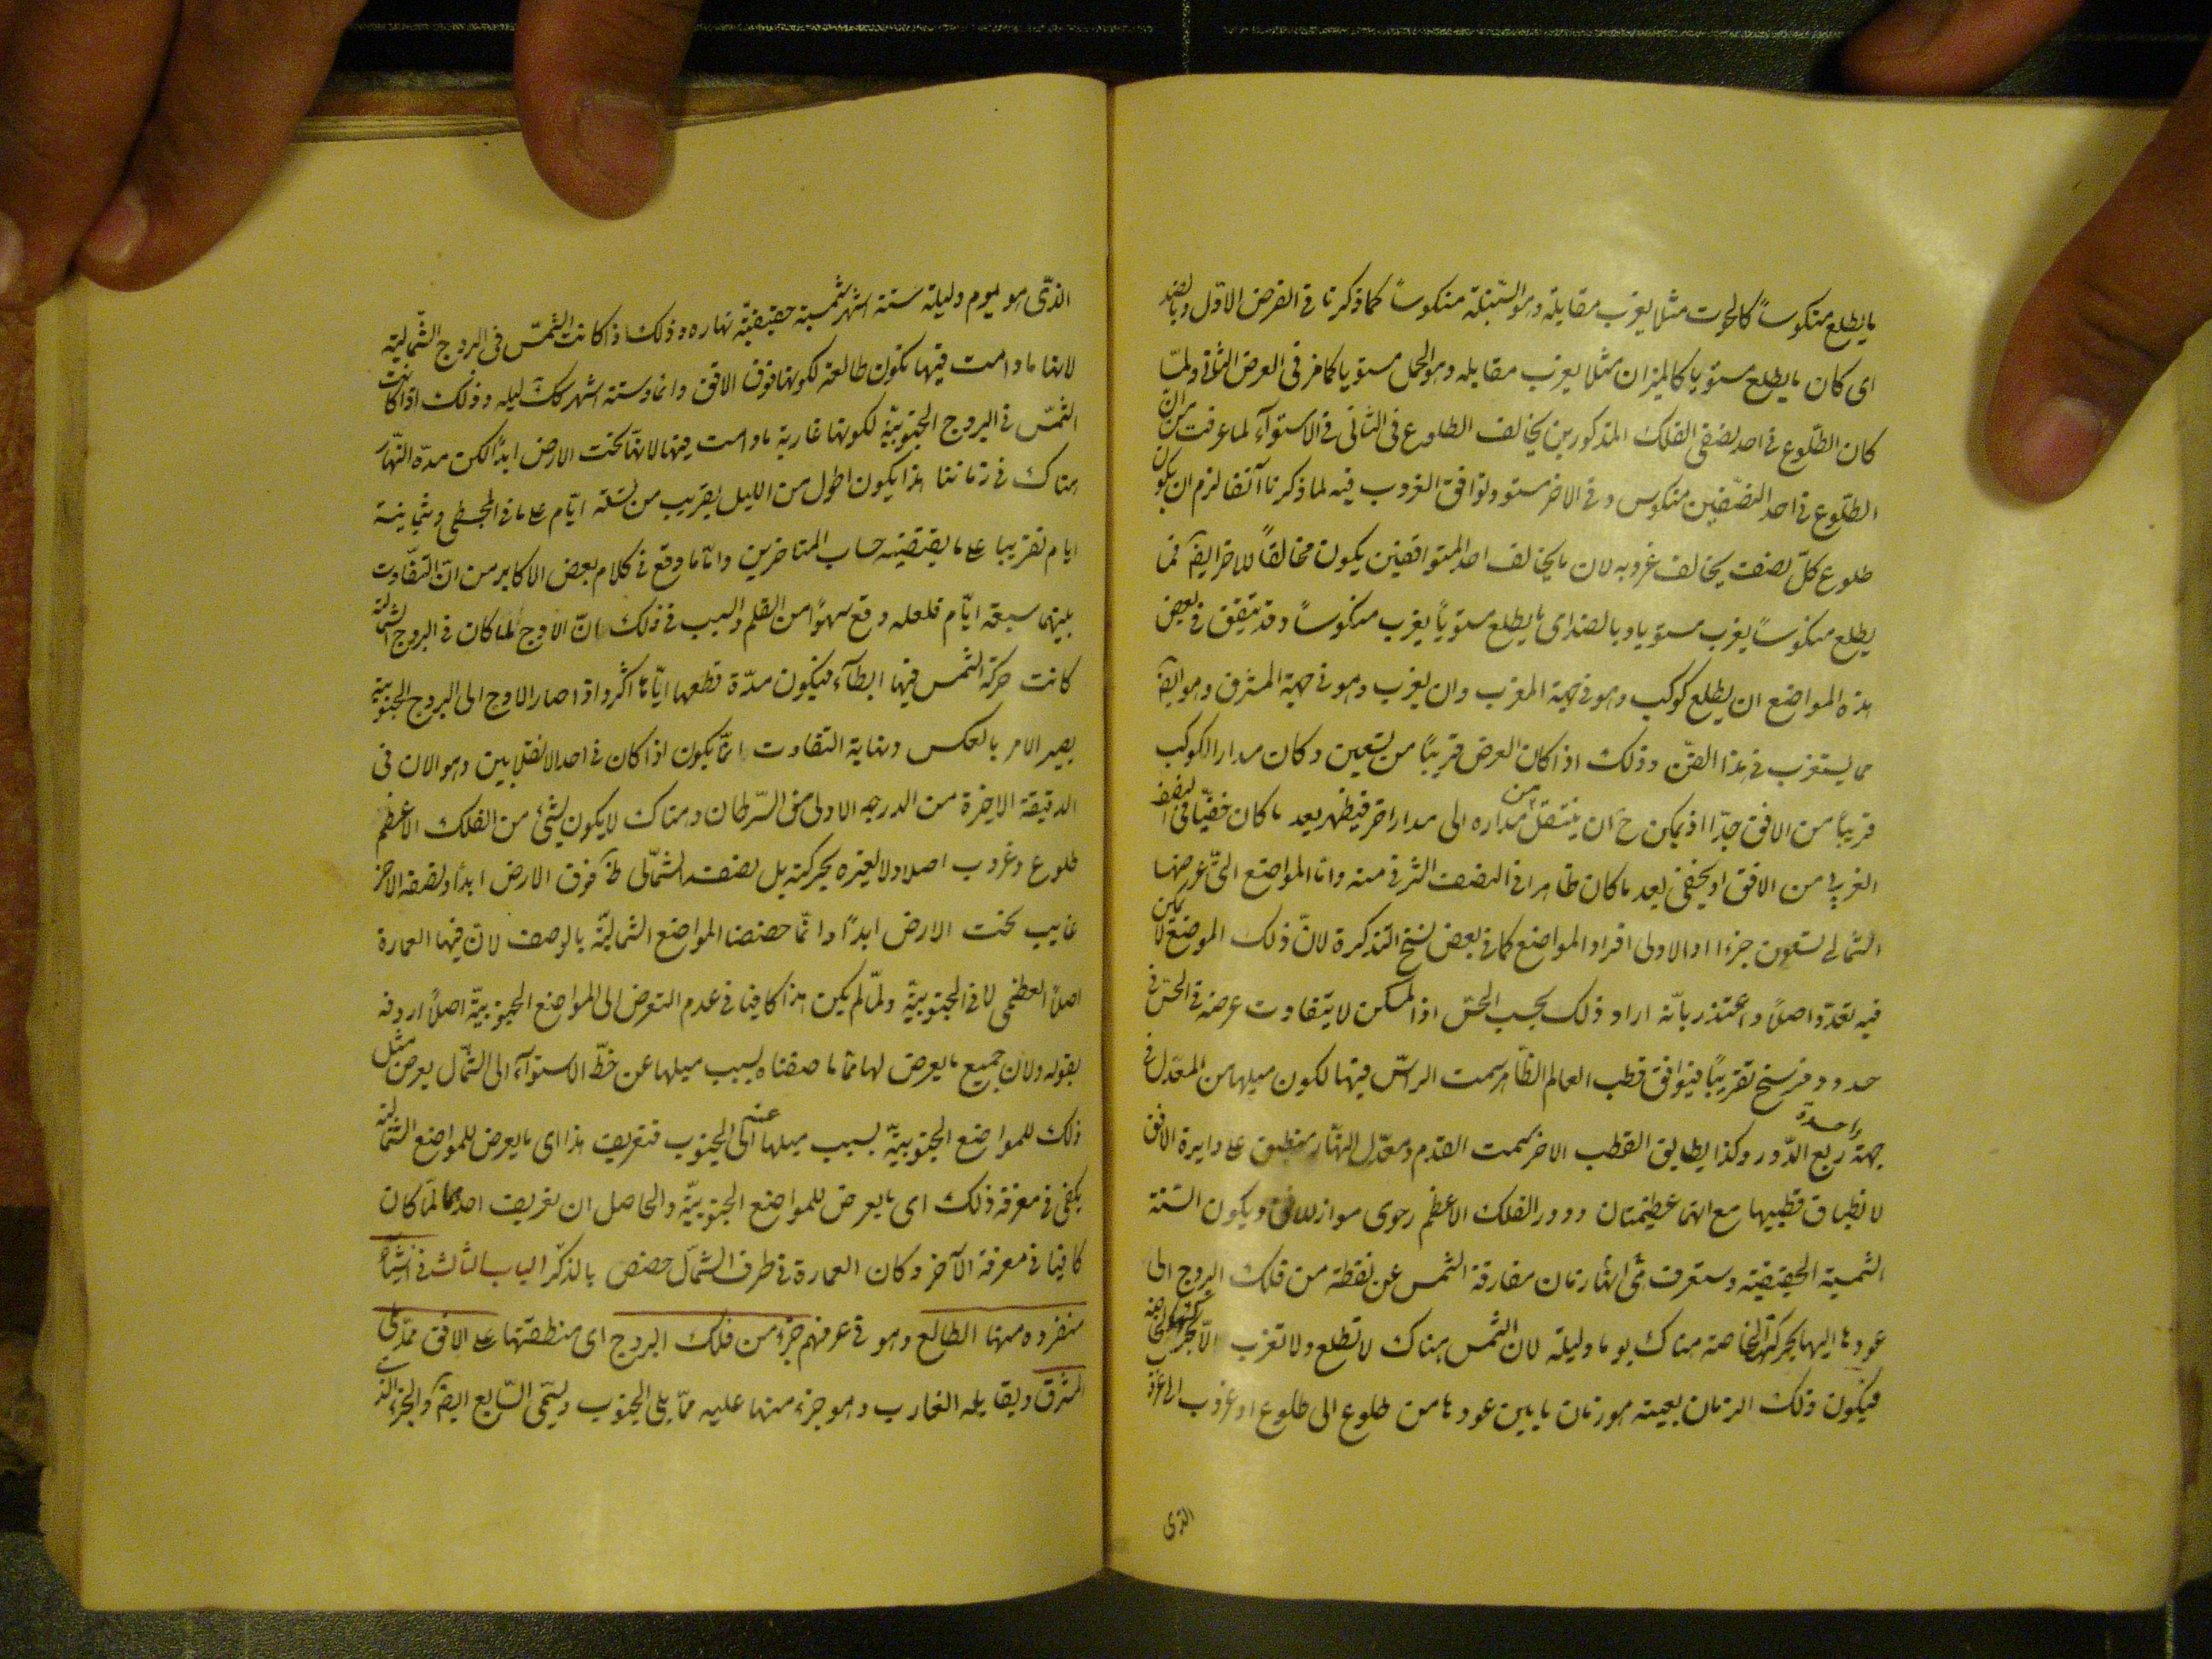 ما يطلع منكوساً كالحوت مثلا يغرب مقابله وهو السنبلة منكوساً كما ذكرنا في الفرض الاول وبالضد
اى كان ما يطلع مستويا كالميزان مثلا يغرب مقابله وهو الحمل مستويا كما مر فى العرض الثانى ولما
كان الطلوع فى احد نصفى الفلك المذكورين يخالف الطلوع فى الثانى فى الاستوآء لما عرفت من ان
الطلوع فى احد النصفين منكوس وفى الاخر مستو وتوافق الغروب فيه لما ذكرنا آنفا لزم ان يكون
طلوع كلّ نصف يخالف غروبه لان ما يخالف احد المتوافقين يكون مخالفاً للاخر ايضا فما
يطلع منكوساً يغرب مستويا وبالضد اى ما يطلع مستوياً يغرب منكوساً وقد يتفق فى بعض
هذه المواضع ان يطلع كوكب وهو فى جهة المغرب وان يغرب وهو فى جهة المشرق وهو ايضا
مما يستغرب فى هذا الفنّ وذلك اذا كان العرض قريباً من تسعين وكان مدار الكوكب
قريباً من الافق جدّا اذ يمكن ح ان ينتقل من مداره الى مدار اخر فيظهر بعد ما كان خفيّا فى النصف
الغربى من الافق او يخفى بعد ما كان ظاهرا فى النصف الشرقى منه واما المواضع التى عرضها
الشمالى تسعون جزءا والاولى افراد المواضع كما فى بعض نسخ التذكرة لانّ ذلك الموضع لا يمكن
فيه تعدّد اصلاً واعتذر بانّه اراد ذلك بحسب الحسّ اذ المسكن لا يتفاوت عرضه فى الحسّ فى
حدود فرسخ تقريباً فيوافق قطب العالم الظاهر سمت الراسّ فيها لكون ميلها من المعدّل فى
جهة واحدة ربع الدّور وكذا يطابق القطب الاخر سمت القدم ومعدّل النهار منطبق على دايرة الافق
لانطباق قطبيها مع انهما عظيمتان ودور الفلك الاعظم رحوى مواز للافق ويكون السنة
الشمسية الحقيقية وستعرف انها زمان مفارقة الشمس عن نقطة من فلك البروج الى
عودها اليها بحركتها الخاصة هناك يوما وليلة لان الشمس هناك لا تطلع ولا تغرب الّا بحركتها الخاصة
فيكون ذلك الزمان بعينه هو زمان ما بين عودها من طلوع الى طلوع او غروب الى غروب
الذى
الذّى هو ليوم وليلة ستة اشهر شمسية حقيقية نهاره وذلك اذا كانت الشمّس فى البروج الشّمالية
لانها ما دامت فيها تكون طالعة لكونها فوق الافق دائما وستة اشهر كك ليله وذلك اذا كانت
الشمّس فى البروج الجنوبيّة لكونها غاربة ما دامت فيها لانها تحت الارض ابدًا لكن مدّة النهّار
هناك فى زماننا هذا يكون اطول من الليل بقريب من تسعة ايّام على ما فى المجسطى وبثمانية
ايام تقريبا على ما يقتضيه حساب المتاخرين وامّا ما وقع فى كلام بعض الاكابر من انّ التفّاوت
بينهما سبعة ايّام فلعله وقع سهوًا من القلم والسبب فى ذلك انّ الاوج لما كان فى البروج الشمالية
كانت حركة الشمس فيها ابطآء فيكون مدّة قطعها ايّاها اكثر واذا صار الاوج الى البروج الجنوبية
يصير الامر بالعكس وغاية التفاوت انمّا يكون اذا كان فى احد الانقلابين وهو الان فى
الدقيقة الاخيرة من الدرجه الاولى من السّرطان وهناك لا يكون لشئ من الفلك الاعظم
طلوع وغروب اصلا ولا لغيره بحركته بل نصفه الشمّالى ظ فوق الارض ابداً ونصفه الاخر
غايب تحت الارض ابدًا وانّما خصّصنا المواضع الشماليّة بالوصف لانّ فيها العمارة
اصلاً العظمى لا فى الجنوبيّة ولمّا لم يكن هذا كافيا فى عدم التعرض الى المواضع الجنوبيّة اصلاً اردفه
بقوله ولان جميع ما يعرض لها ممّا وصفناه بسبب ميلها عن خطّ الاستوآء الى الشمّال يعرض مثل
ذلك للمواضع الجنوبيّة بسبب ميلها عنه الى الجنوب فتعريف هذا اى ما يعرض للمواضع الشمالية
يكفى فى معرفة ذلك اى ما يعرض للمواضع الجنوبيّة والحاصل ان تعريف احدهما لمّا كان
كافيا فى معرفة الآخر وكان العمارة فى طرف الشمّال خصّص بالذكّر الباب الثالث فى اشيآء
منفرده منها الطالع وهو فى عرفهم جزء من فلك البروج اى منطقتها على الافق ممّا يلى
المشرق ويقابله الغارب وهو جزء منها عليه ممّا يلى الجنوب ويسمّى السّابع ايضا والجزء الذى